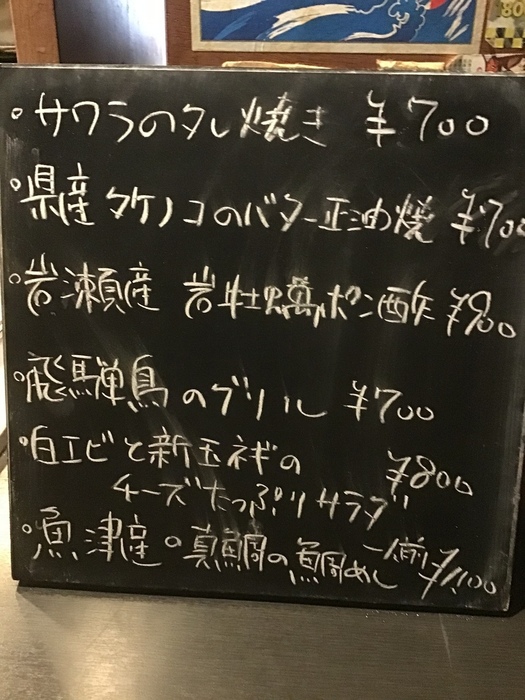 ◦サワラのタレ焼き ¥700
◦県産タケノコのバター正油焼 ¥700
◦岩瀬産 岩牡蠣ポン酢 ¥900
◦飛騨鳥のグリル ¥700
◦白エビと新玉ネギの ¥800
チーズたっぷりサラダ
◦魚津産の真鯛の鯛めし 一人前 ¥1,100